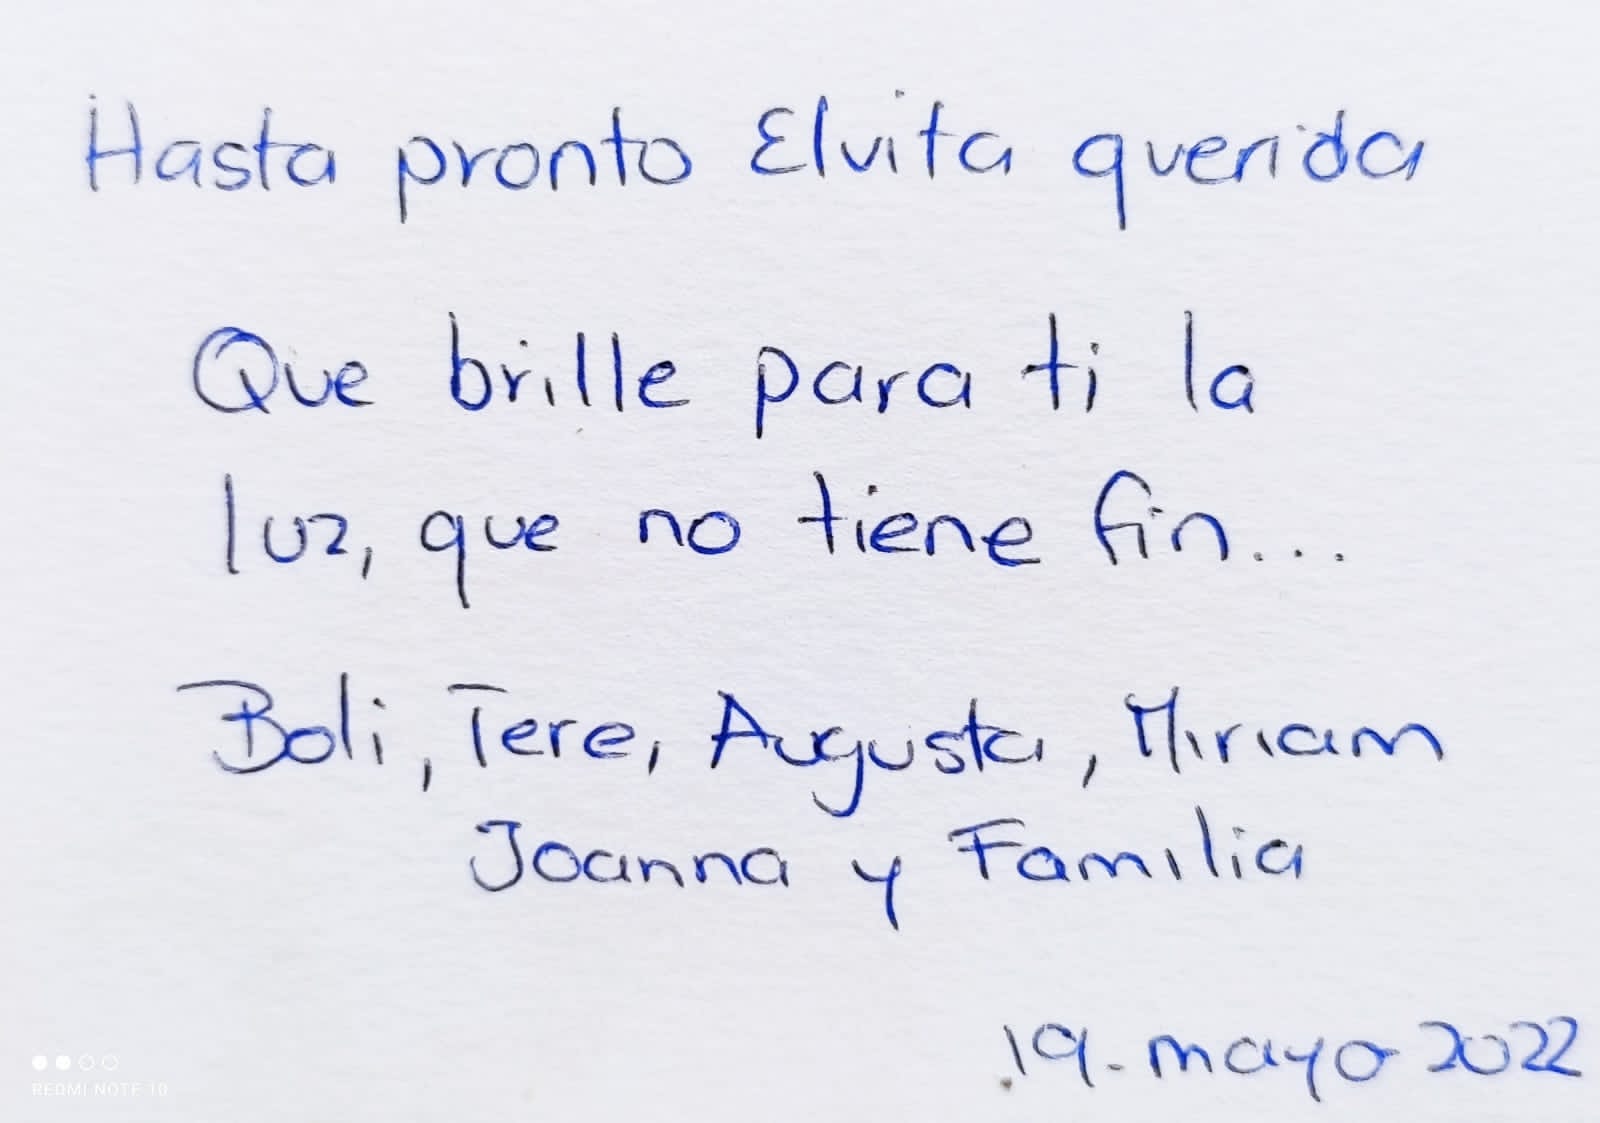 Hasta pronto Elvita querida
Que brille para ti la
luz, que no tiene fin...
Boli, Tere, Augusta, Miriam
Joanna y Familia
19-mayo 2022
REDMI NOTE 10